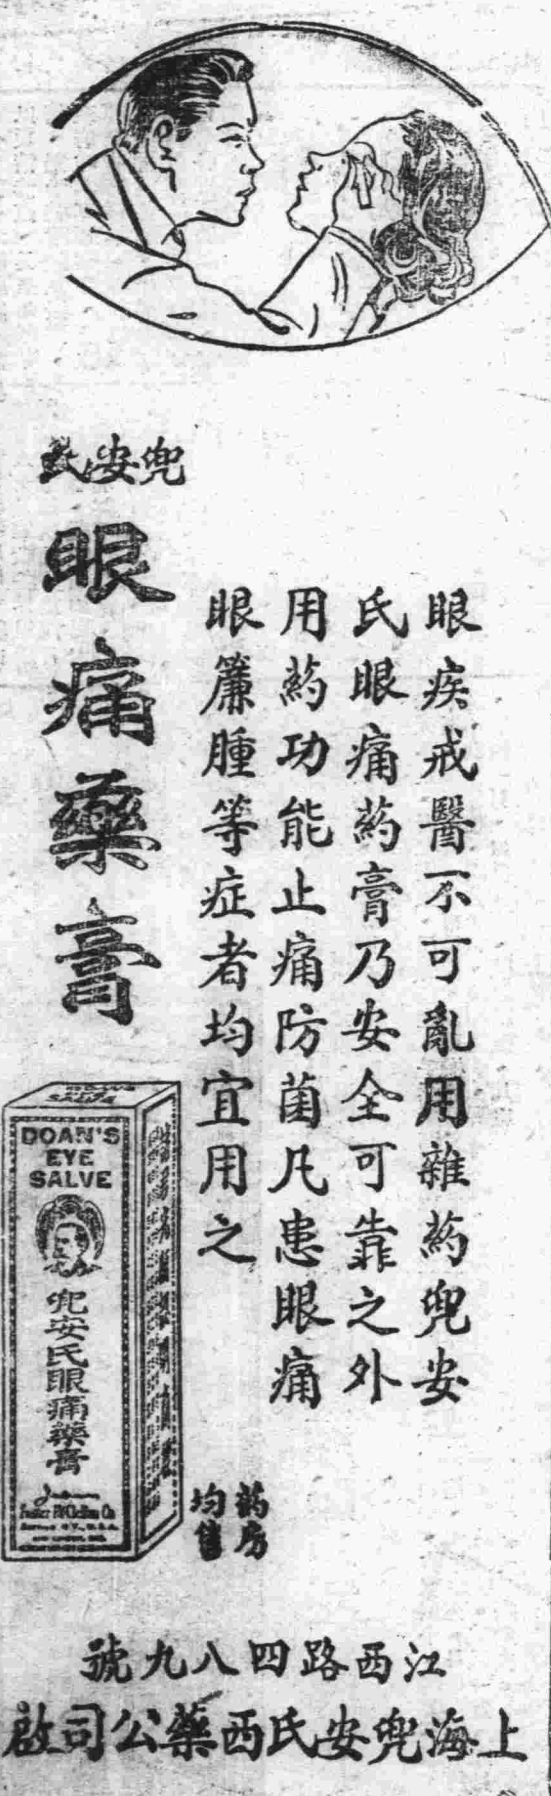 眼疾戒醫不可亂用雜葯兜安
氏眼痛葯膏乃安全可靠之外
用葯功能止痛防菌凡患眼痛
眼簾腫等症者均宜用之
兜安氏
眼痛藥膏
SALVE
DOAN'S
EYE
SALVE
兜安氏眼痛藥膏
Foster McClellan Co
葯房
均售
江西路四八九號
上海兜安氏西藥公司啟